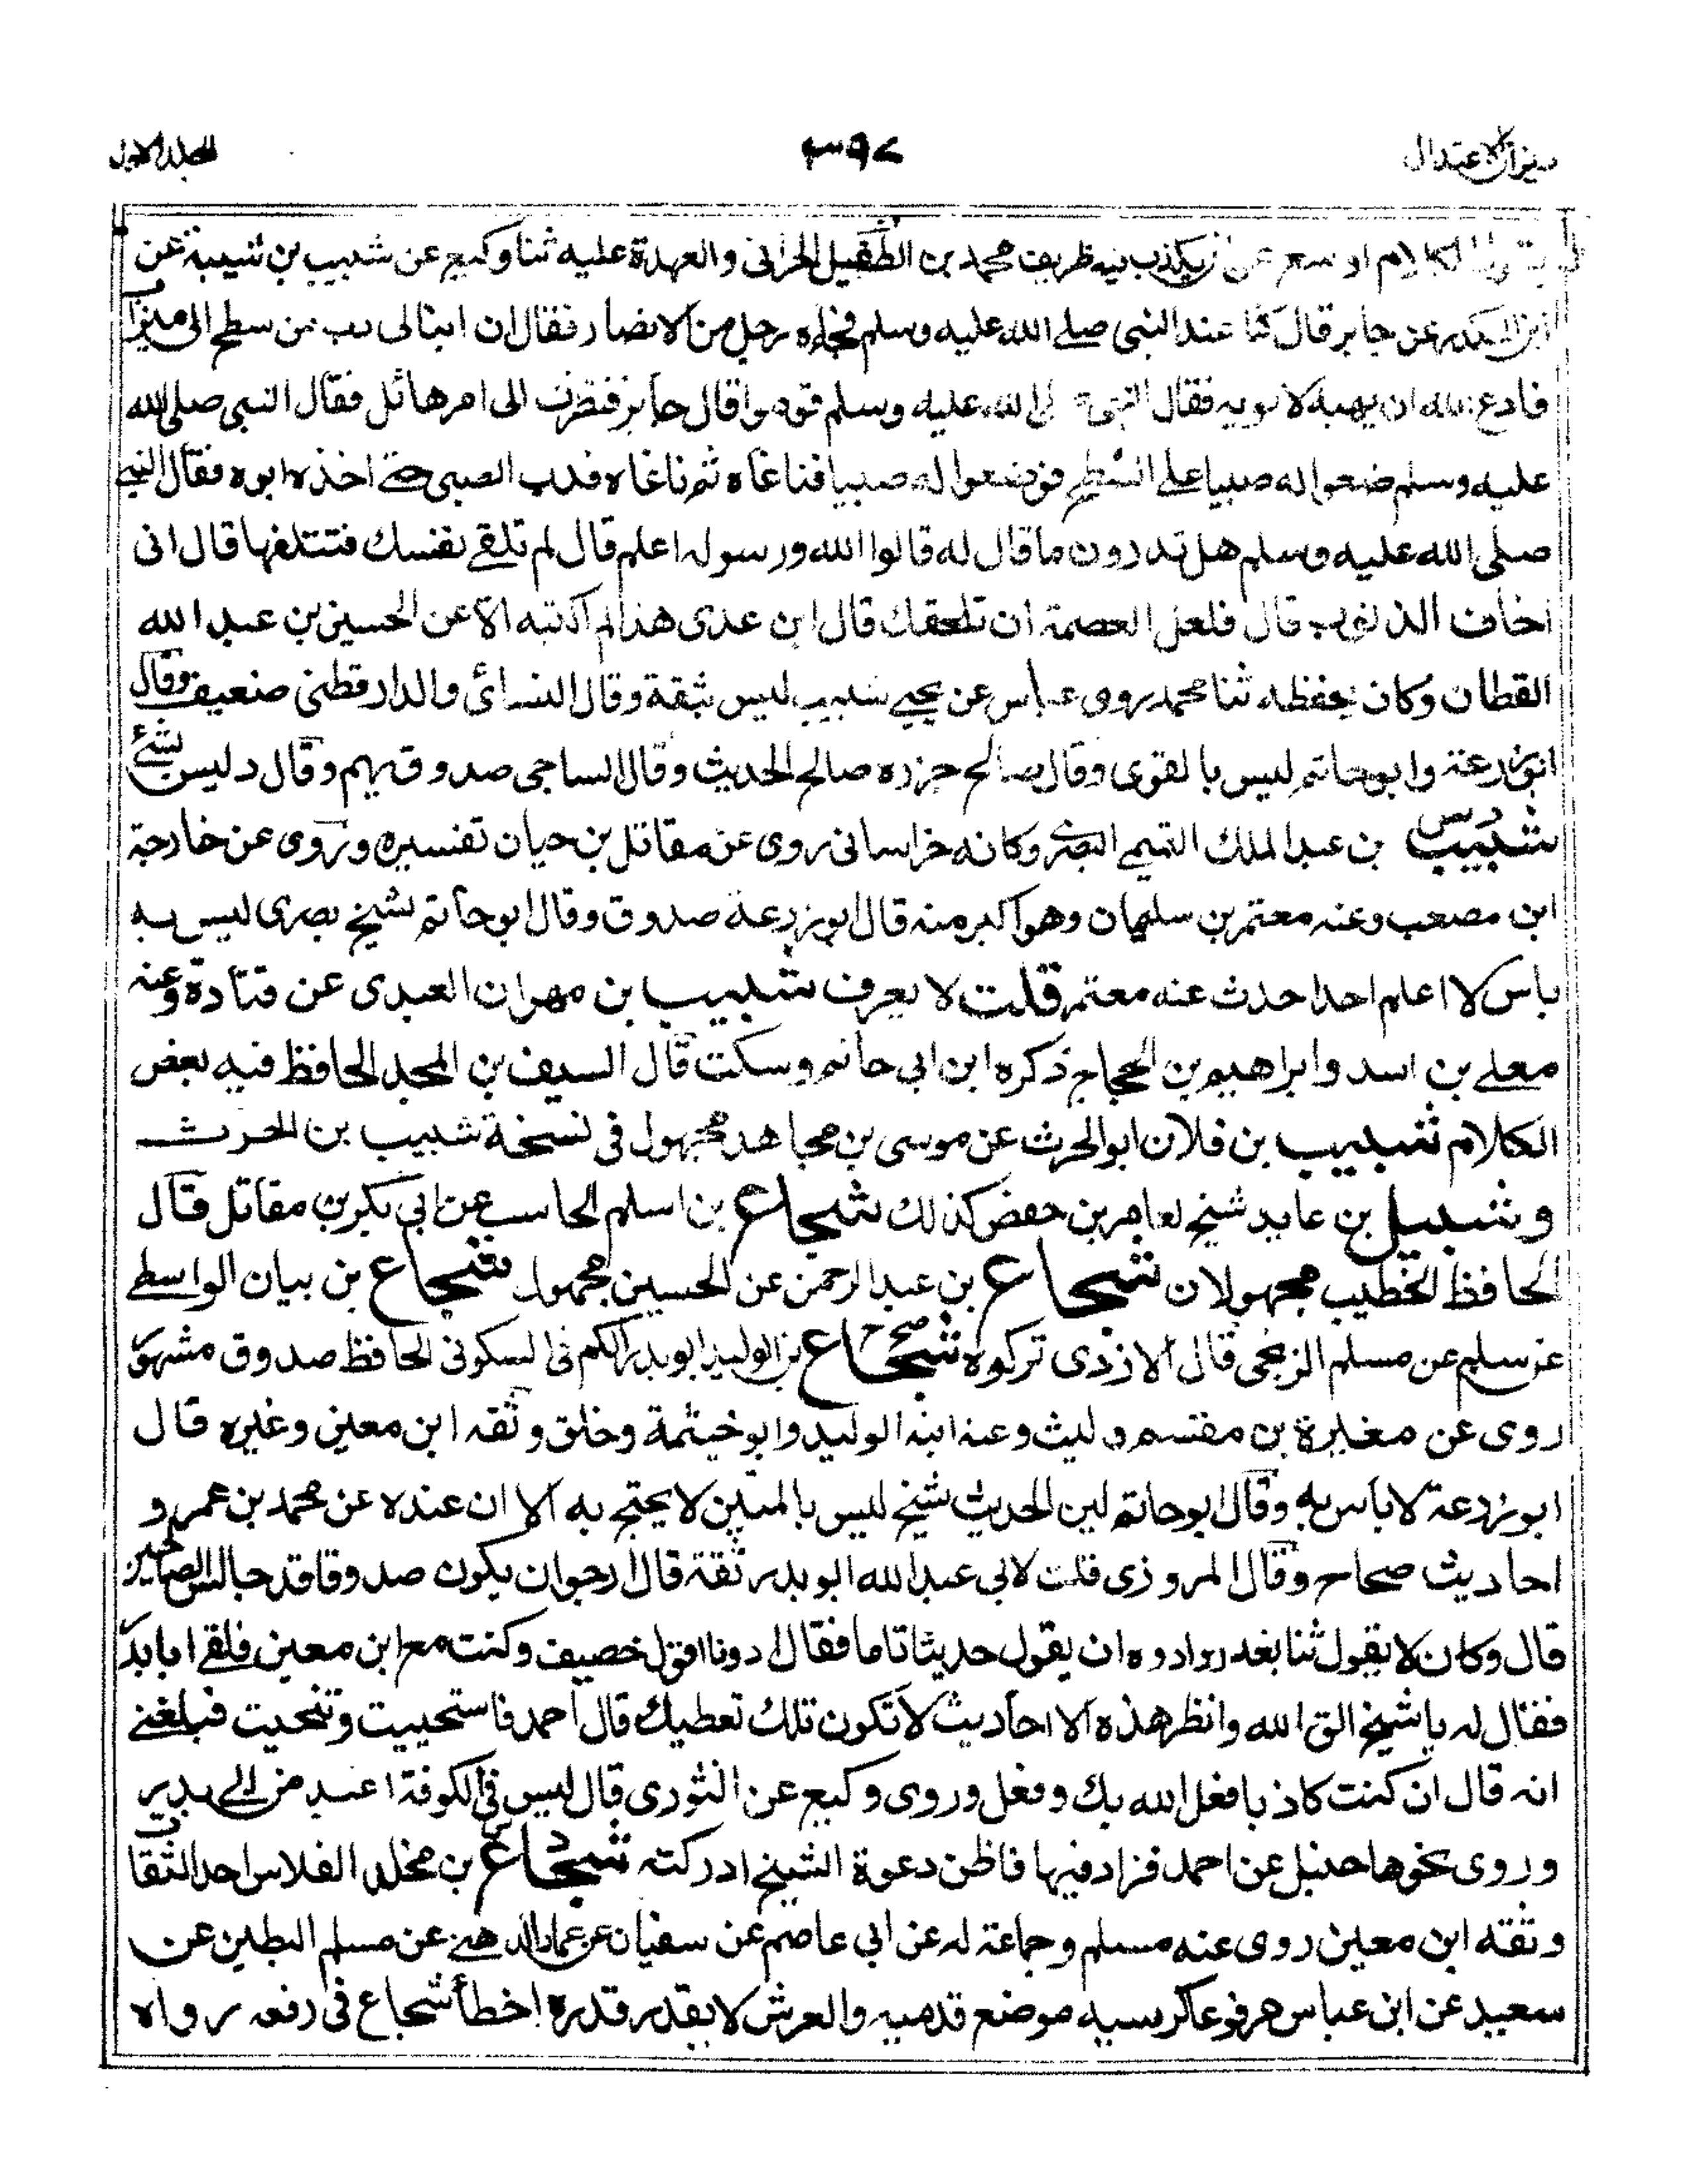 ميزان الاعتدال ٣٩٧ المجلد الاول
يقول الكلام اوسع من ان يكذب فيه ظريف محمد بن الطفيل الحرانى والعهدة عليه ثنا وكيع عن شبيب بن شيبة عن
ابن المنكدر عن جابر قال كنا عند النبى صلے الله عليه وسلم فجاءه رجل من الانصار فقال ان ابنا لى دب من سطح الى ميزاب
فادع الله ان يهبه لابويه فقال النبى صلى الله عليه وسلم قوموا قال جابر فنظرت الى امر هائل فقال النبى صلى الله
عليه وسلم ضعوا له صبيا على السطح فوضعوا له صبيا فناغاه ثم ناغاه فدب الصبى حتے اخذه ابوه فقال النبے
صلى الله عليه وسلم هل تدرون ما قال له قالوا الله ورسوله اعلم قال لم تلقے نفسك فتتلفها قال انى
اخاف الذنوب قال فلعل العصمة ان تلحقك قال ابن عدى هذا لم اكتبه الا عن الحسين بن عبد الله
القطان وكان يحفظه ثنا محمد روى عباس عن يحيے شبيب ليس بثقة وقال النسائى والدارقطنى ضعيف وقال
ابو زرعة وابو حاتم ليس بالقوى وقال صالح جزره صالح الحديث وقال الساجى صدوق يهم وقال د ليس بشئ
شبيب بن عبد الملك التميمے البصرے وكانه خراسانى روى عن مقاتل بن حيان تفسيره وروى عن خارجة
ابن مصعب وعنه معتمر بن سليمان وهو اكبر منه قال ابو زرعة صدوق وقال ابو حاتم شيخ بصرى ليس به
باس لا اعلم احدا حدث عنه معتمر قلت لا يعرف شبيب بن مهران العبدى عن قتادة وعنه
معلے بن اسد وابراهيم بن الحجاج ذكره ابن ابى حاتم وسكت قال السيف بن المجد الحافظ فيه بعض
الكلام شبيب بن فلان ابو الحرث عن موسى بن مجاهد مجهول فى نسخة شبيب بن الحرث
وشبيل بن عايد شيخ لعامر بن حفص كذلك شجاع بن اسلم الحاسب عن ابى بكر بن مقاتل قال
الحافظ الخطيب مجهولان شجاع بن عبد الرحمن عن الحسين مجهول شجاع بن بيان الواسطے
عن سلم عن مسلم الزنجى قال الازدى تركوه شجاع بن الوليد ابو بدر السكونى الحافظ صدوق مشهور
روى عن مغيرة بن مقسم وليث وعنه ابنه الوليد وابو خيثمة وخلق وثقه ابن معين وغيره قال
ابو زرعة لا باس به وقال ابو حاتم لين الحديث شيخ ليس بالمتين لا يحتج به الا ان عنده عن محمد بن عمرو
احاديث صحاح وقال المروزى قلت لابى عبد الله ابو بدر ثقة قال ارجو ان يكون صدوقا قد جالس الصالحين
قال وكان لا يقول ثنا ارادوه ان يقول حديثا تاما فقال خصيف وكنت مع ابن معين فلقے ابا بدر
فقال له يا شيخ اتق الله وانظر هذه الاحاديث لا تكون تلك تعطيك قال احمد فاستحييت وتنحيت فبلغنے
انه قال ان كنت كاذبا فعل الله بك وفعل وروى وكيع عن الثورى قال ليس فى الكوفة اعبد من ابے بدر
وروى نحوها حنبل عن احمد فزاد فيها فاظن دعوة الشيخ ادركته شجاع بن مخلد الفلاس احد الثقات
وثقه ابن معين روى عنه مسلم وجماعة له عن ابى عاصم عن سفيان عن عمار الدهنے عن مسلم البطين عن
سعيد عن ابن عباس مرفوعا كرسيه موضع قدميه والعرش لا يقدر قدره اخطأ شجاع فى رفعه رواه